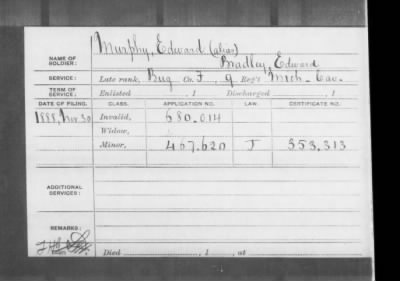 Murphy, Edward (alias)
NAME OF SOLDIER: Bradley, Edward
SERVICE: Late rank, Bug Co. F, 9 Reg't Mich. Cav.
TERM OF SERVICE: Enlisted , 1 Discharged , 1
DATE OF FILING. CLASS. APPLICATION NO. LAW. CERTIFICATE NO.
1888, Nov 30 Invalid, 680.014
Widow,
Minor, 467.620 J 353,313
ADDITIONAL SERVICES:
REMARKS:
Died , 1 , at